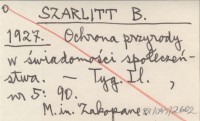 SZARLITT B.
1927. Ochrona przyrody
w świadomości społeczeń-
stwa. – Tyg. Il. ,
nr 5: 90.
M. in. Zakopane